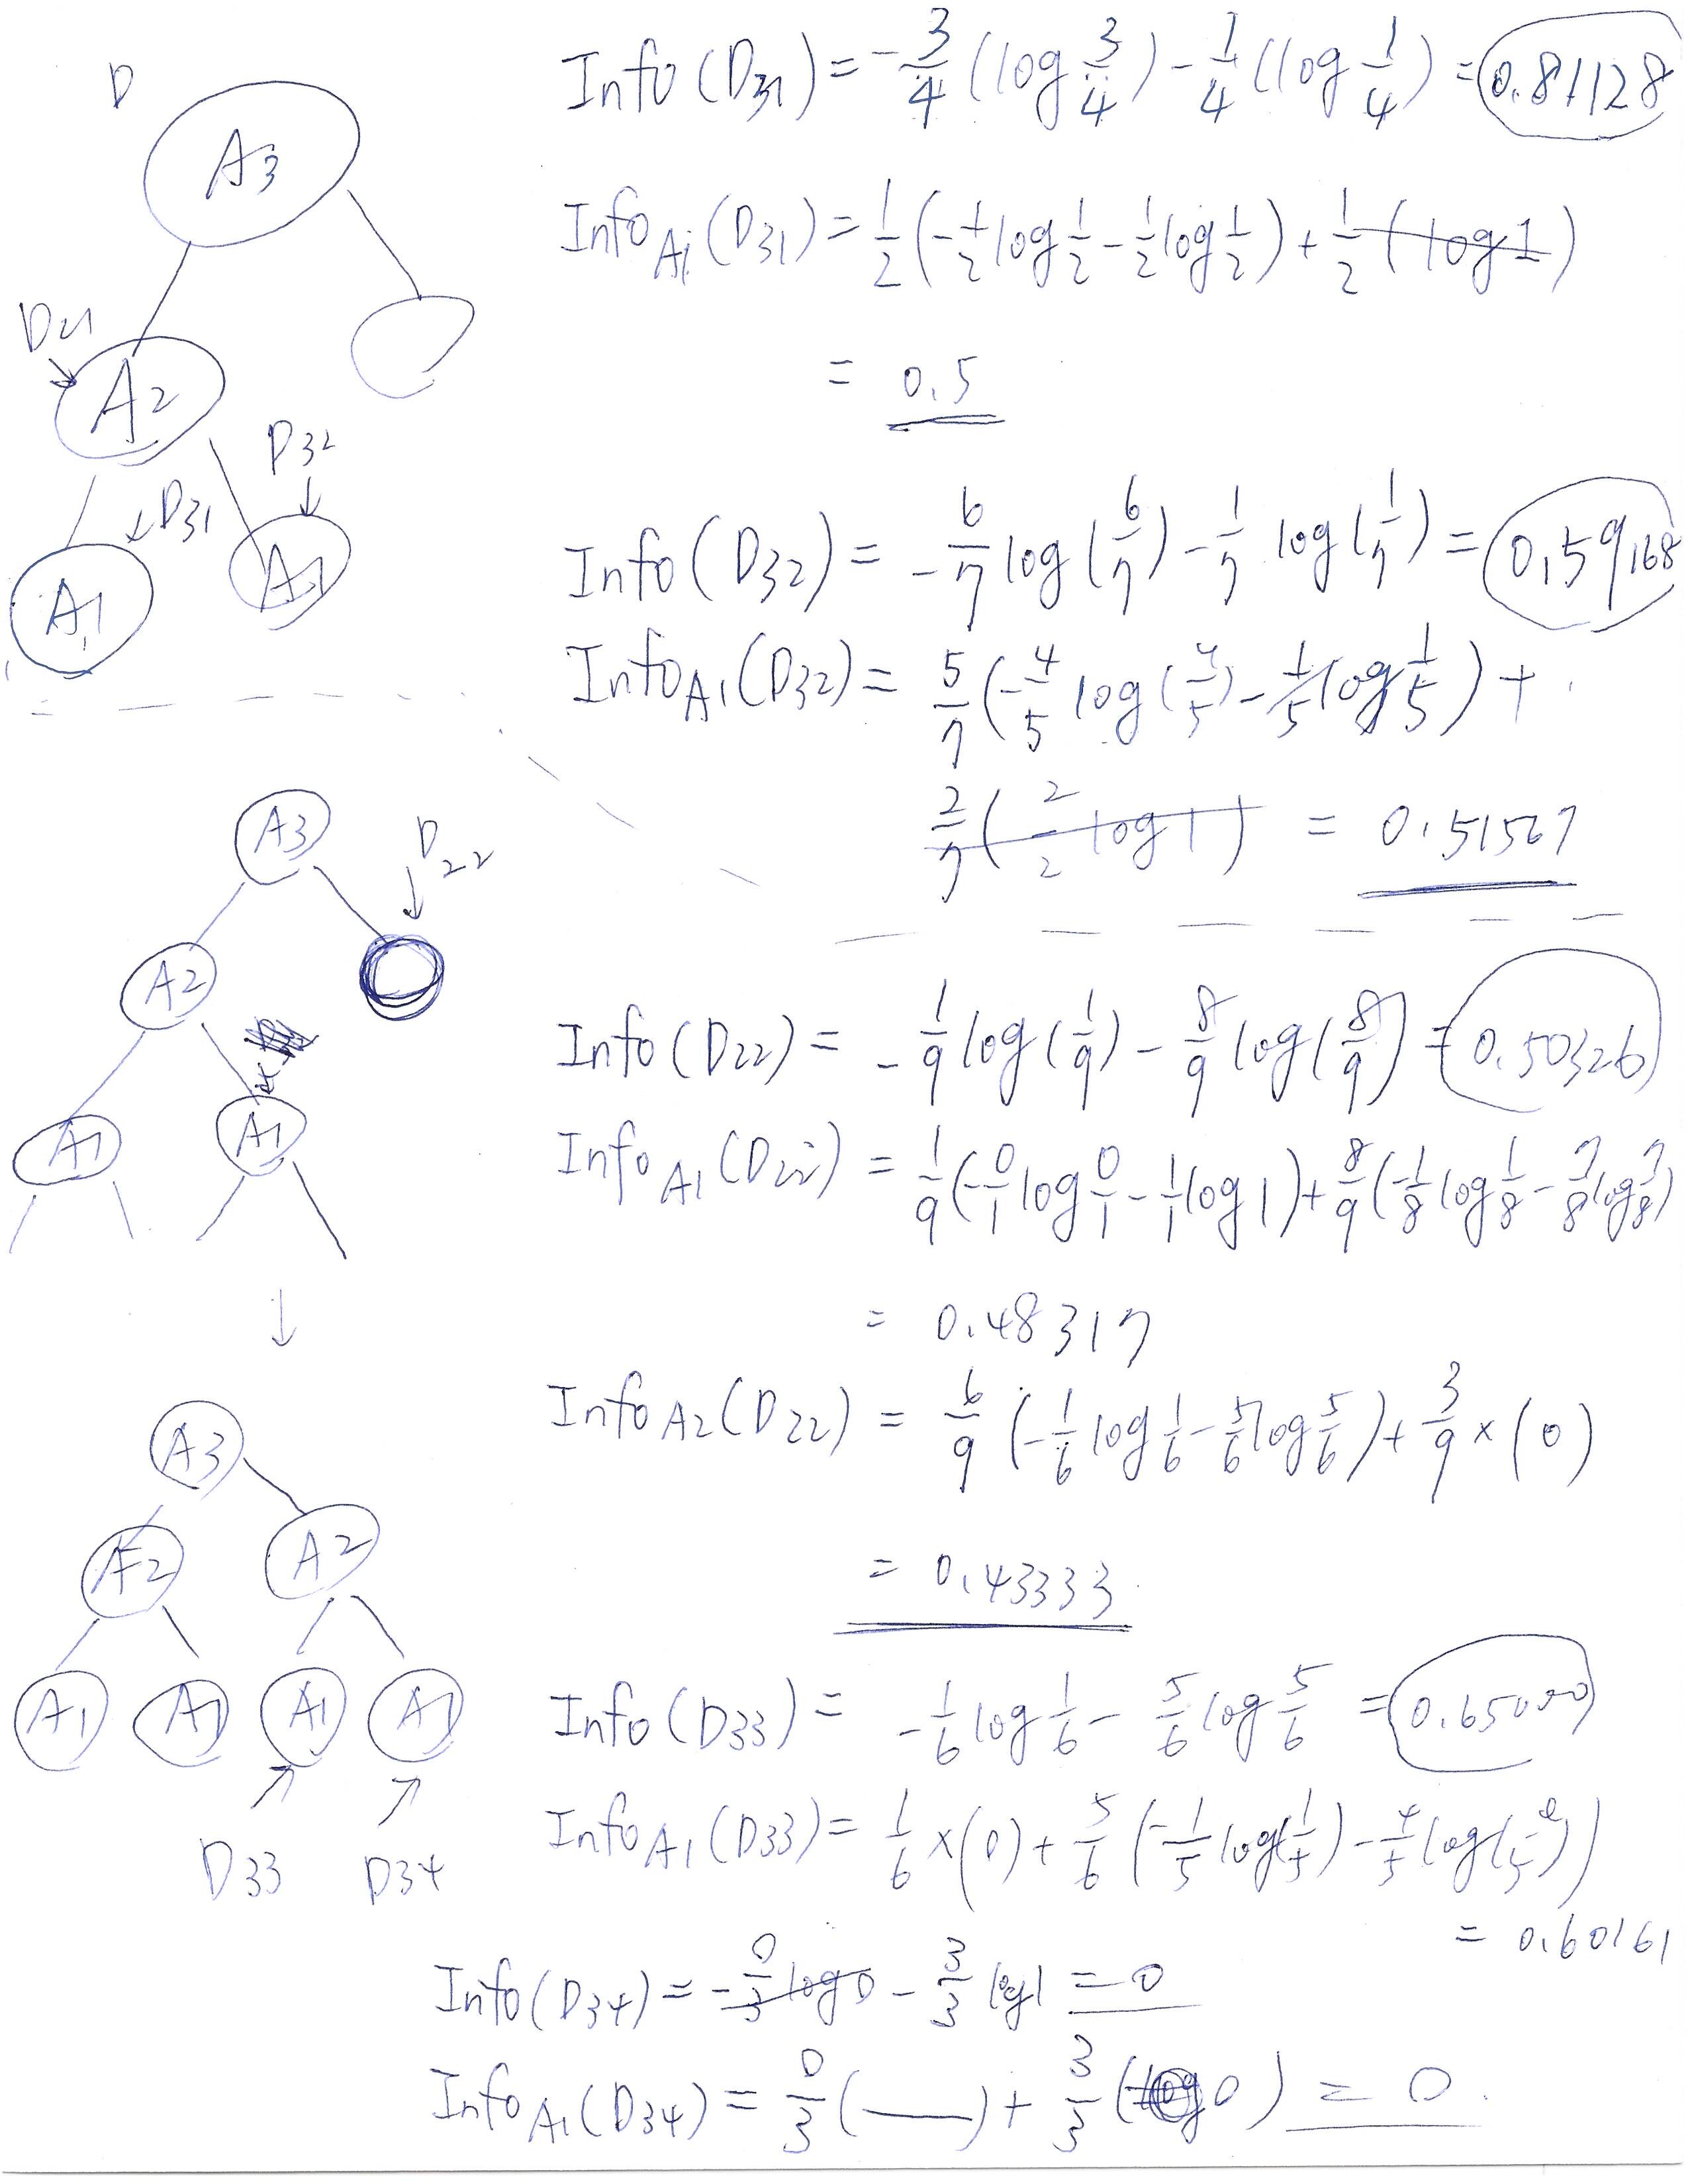 D
A3
D21
A2
D32
D31
A1
A1
Info(D31) = -3/4 (log 3/4) - 1/4 (log 1/4) = 0.81128
Info A1 (D31) = 1/2 (-1/2 log 1/2 - 1/2 log 1/2) + 1/2 (log 1)
= 0.5
Info(D32) = -6/7 log(6/7) - 1/7 log(1/7) = 0.59168
Info A1 (D32) = 5/7 (-4/5 log(4/5) - 1/5 log 1/5) +
2/7 (2/2 log 1) = 0.51567
A3
D22
A2
A1
A1
Info(D22) = -1/9 log(1/9) - 8/9 log(8/9) = 0.50326
Info A1 (D22) = 1/9 (-0/1 log 0/1 - 1/1 log 1) + 8/9 (-1/8 log 1/8 - 7/8 log 7/8)
= 0.48317
Info A2 (D22) = 6/9 (-1/6 log 1/6 - 5/6 log 5/6) + 3/9 × (0)
= 0.43333
A3
A2
A2
A1
A1
A1
A1
D33
D34
Info(D33) = -1/6 log 1/6 - 5/6 log 5/6 = 0.65000
Info A1 (D33) = 1/6 × (0) + 5/6 (-1/5 log(1/5) - 4/5 log(4/5))
= 0.60161
Info(D34) = -0/3 log 0 - 3/3 log 1 = 0
Info A1 (D34) = 0/3 ( ) + 3/3 (log 0) = 0.